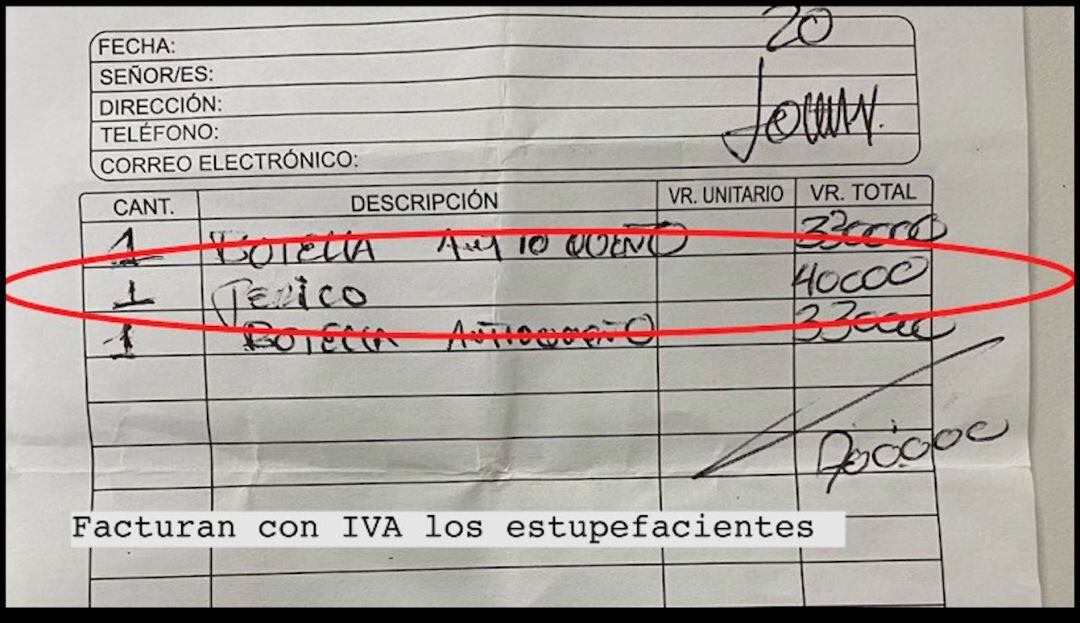 20
FECHA:
SEÑOR/ES:
DIRECCIÓN:
TELÉFONO:
CORREO ELECTRÓNICO:
CANT. DESCRIPCIÓN VR. UNITARIO VR. TOTAL
1 BOTELLA ANTIOQUEÑO 330000
1 Perico 40000
1 BOTELLA ANTIOQUEÑO 330000
700.000
Facturan con IVA los estupefacientes